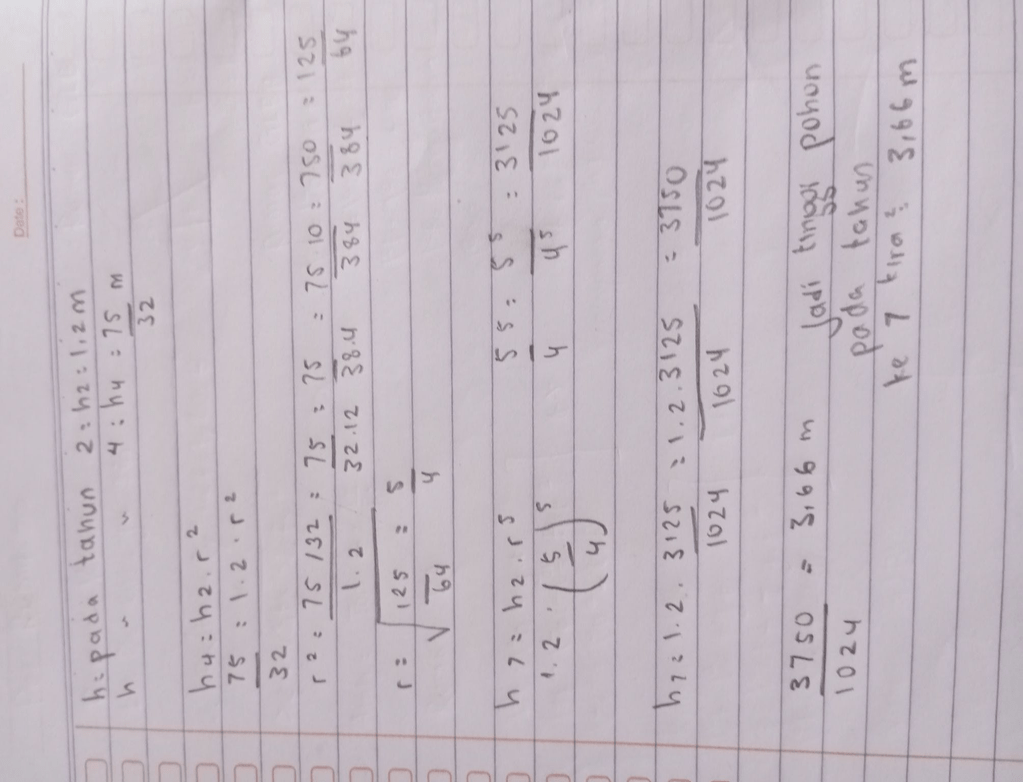 Date :
h = pada tahun 2 = h2 = 1,2 m
h " " 4 : h4 = 75/32 m
h4 = h2 . r²
75/32 = 1.2 . r²
r² = 75/32 / 1.2 = 75 / 32.12 = 75 / 38.4 = 75 10 / 384 = 750 / 384 = 125 / 64
r = √125/64 = 5/4
h7 = h2 . r⁵
1.2 . (5/4)⁵ 5/4 5 = 5⁵/4⁵ = 3125/1024
h7 = 1.2 . 3125/1024 = 1.2 . 3125/1024 = 3750/1024
3750/1024 = 3,66 m Jadi tinggi pohon
pada tahun
ke 7 kira² = 3,66 m